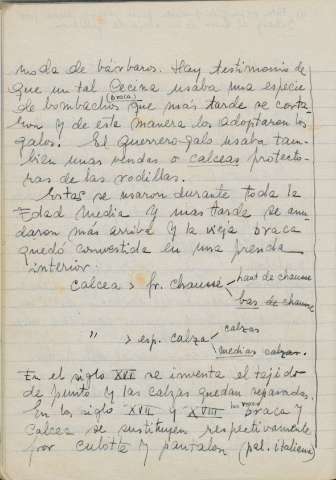 moda de bárbaros. Hay testimonio de
que un tal Cecina usaba una especie
de bombachos (braca) que más tarde se corta
ron y de esta manera los adoptaron los
galos. El guerrero galo usaba tam-
bién unas vendas o calceas protecto-
ras de las rodillas.
Estas se usaron durante toda la
Edad Media y mas tarde se anu-
daron más arriba y la vieja braca
quedó convertida en una prenda
interior:
calcea > fr. chausse haut de chausse
bas de chausse
" > esp. calza calzas
medias calzas.
En el siglo XVI se inventa el tejido
de punto y las calzas quedan separadas.
En los siglos XVII y XVIII braca y
calcea se sustituyen respectivamente
por culotte y pantalon (pal. italiana)